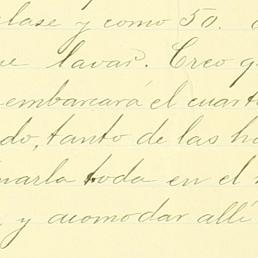 clase y como 50.
lavar. Creo q
embarcará el cuart
do, tanto de las h
marla toda en el
y acomodar allí